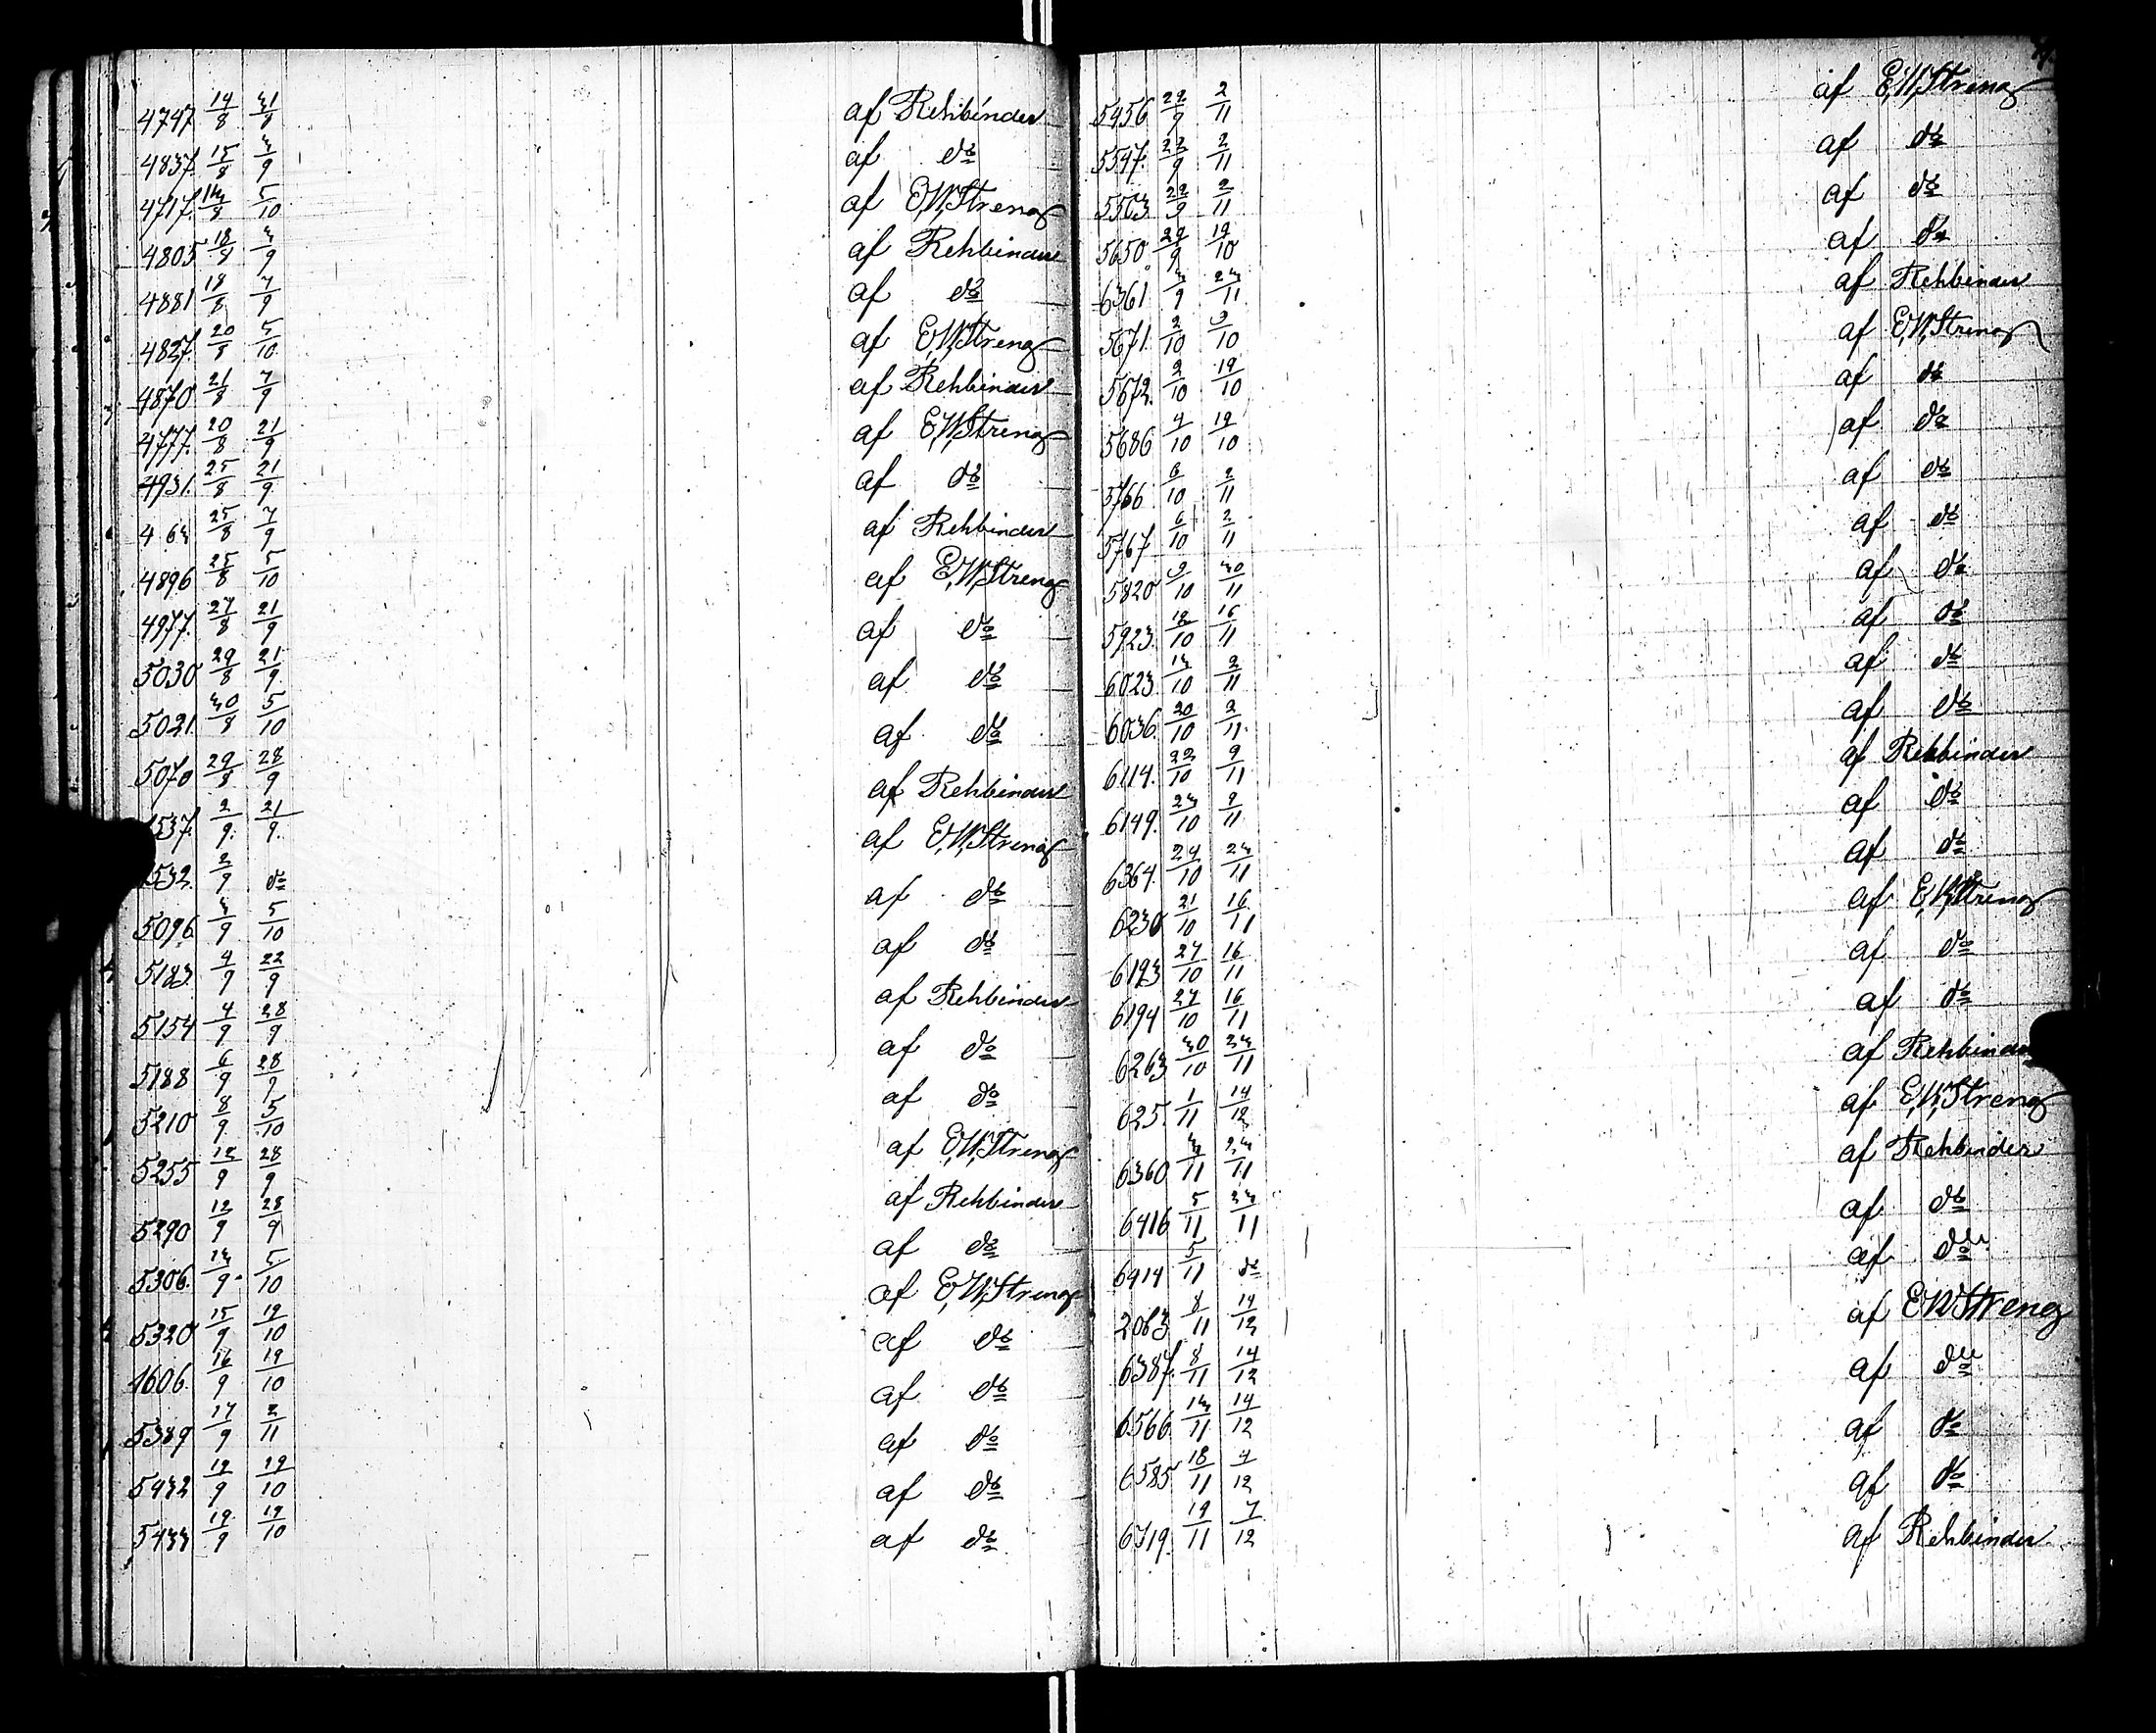 4747 14/8 31/8 af Rehbinder
4837. 15/8 3/9 af do
4717. 13/8 5/10 af E,W,Streng
4805 18/8 3/9 af Rehbinder
4881 18/8 7/9 af do
4827. 20/8 5/10 af E,W,Streng
4870 21/8 7/9 af Rehbinder
4777. 20/8 21/9 af E,W,Streng
4931. 25/8 21/9 af do
4 63 25/8 7/9 af Rehbinder
4896 25/8 5/10 af E,W,Streng
4977. 27/8 21/9 af do
5030 29/8 21/9 af do
5021. 30/8 5/10 af do
5070 29/8 28/9 af Rehbinder
537. 2/9 21/9 af E,W,Streng
532. 2/9 do af do
5096. 3/9 5/10 af do
5183. 4/9 22/9 af Rehbinder
5154 4/9 28/9 af do
5188 6/9 28/9 af do
5210 8/9 5/10 af E,W,Streng
5255 12/9 28/9 af Rehbinder
5290 12/9 28/9 af do
5306. 13/9 5/10 af E,W,Streng
5320 15/9 19/10 af do
4606. 16/9 19/10 af do
5389 17/9 2/11 af do
5432 19/9 19/10 af do
5433 19/9 19/10 af do
5456 22/9 2/11 af E,W,Streng
5547. 22/9 2/11 af do
5503. 22/9 2/11 af do
5650 29/9 19/10 af do
6361 3/9 23/11 af Rehbinder
5671. 2/10 9/10 af E,W,Streng
5672. 2/10 19/10 af do
5686 4/10 19/10 af do
5766 6/10 2/11 af do
5767 6/10 2/11 af do
5820 9/10 30/11 af do
5923. 18/10 16/11 af do
6023. 13/10 2/11 af do
6036. 20/10 2/11 af do
6114. 22/10 9/11 af Rehbinder
6149. 23/10 9/11 af do
6364. 24/10 23/11 af do
6230 21/10 16/11 af E,W,Streng
6193 27/10 16/11 af do
6194 27/10 16/11 af do
6263 30/10 23/11 af Rehbinder
625. 1/11 14/12 af E,W,Streng
6360 3/11 23/11 af Rehbinder
6416 5/11 23/11 af do
6414 5/11 do af do
2063 8/11 14/12 af E W Streng
6387. 8/11 14/12 af do
6566. 13/11 14/12 af do
6585 18/11 4/12 af do
6719. 19/11 7/12 af Rehbinder